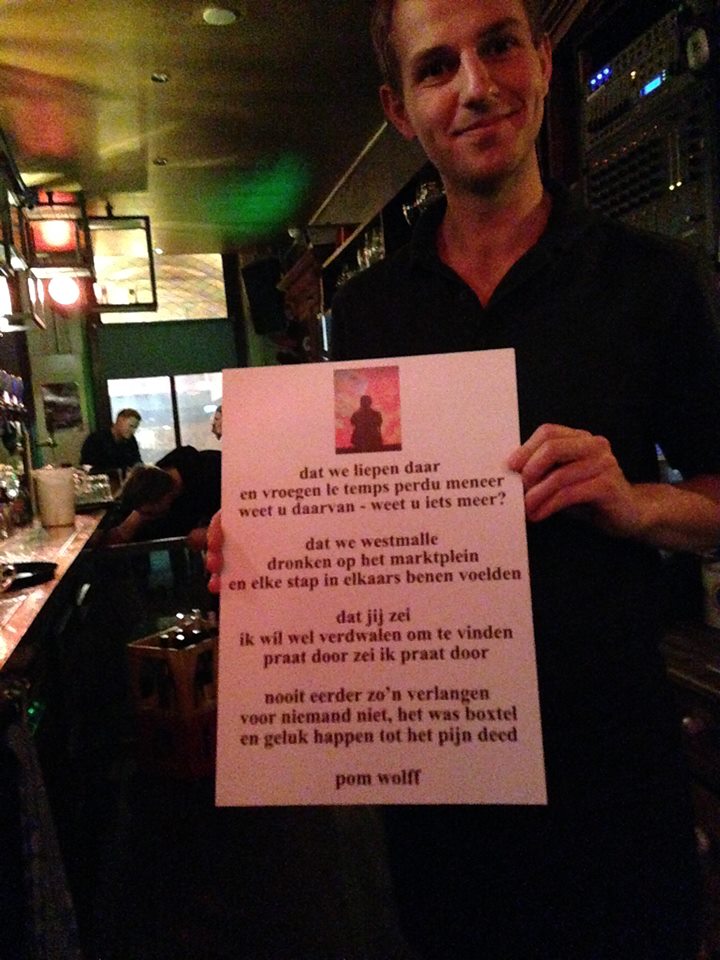 dat we liepen daar
en vroegen le temps perdu meneer
weet u daarvan - weet u iets meer?
dat we westmalle
dronken op het marktplein
en elke stap in elkaars benen voelden
dat jij zei
ik wil wel verdwalen om te vinden
praat door zei ik praat door
nooit eerder zo'n verlangen
voor niemand niet, het was boxtel
en geluk happen tot het pijn deed
pom wolff